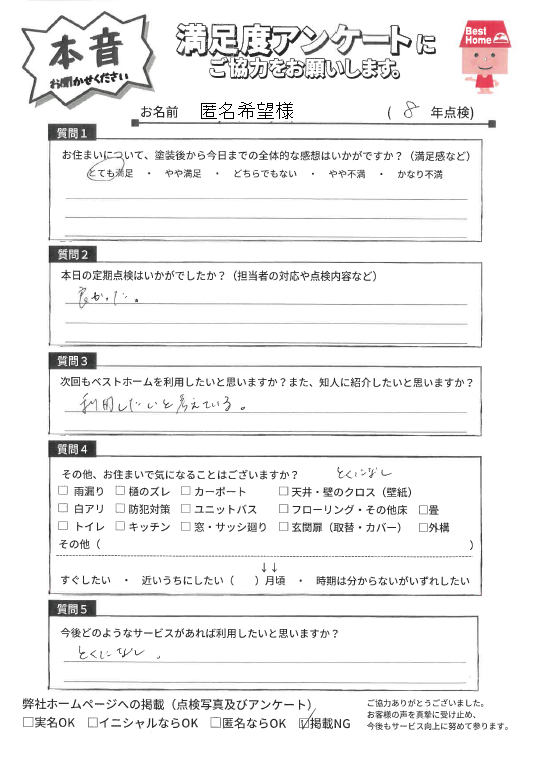 本音
お聞かせください
満足度アンケートに
ご協力をお願いします。
Best Home
お名前 匿名希望様 ( 8 年点検)
質問1
お住まいについて、塗装後から今日までの全体的な感想はいかがですか？（満足感など）
とても満足 ・ やや満足 ・ どちらでもない ・ やや不満 ・ かなり不満
質問2
本日の定期点検はいかがでしたか？（担当者の対応や点検内容など）
良かった。
質問3
次回もベストホームを利用したいと思いますか？また、知人に紹介したいと思いますか？
利用したいと考えている。
質問4
その他、お住まいで気になることはございますか？ とくになし
□ 雨漏り □ 樋のズレ □ カーポート □ 天井・壁のクロス（壁紙）
□ 白アリ □ 防犯対策 □ ユニットバス □ フローリング・その他床 □畳
□ トイレ □ キッチン □ 窓・サッシ廻り □ 玄関扉（取替・カバー） □外構
その他（ ）
↓↓
すぐしたい ・ 近いうちにしたい（ ）月頃 ・ 時期は分からないがいずれしたい
質問5
今後どのようなサービスがあれば利用したいと思いますか？
とくになし。
弊社ホームページへの掲載（点検写真及びアンケート）
□実名OK □イニシャルならOK □匿名ならOK ☑掲載NG
ご協力ありがとうございました。
お客様の声を真摯に受け止め、
今後もサービス向上に努めて参ります。